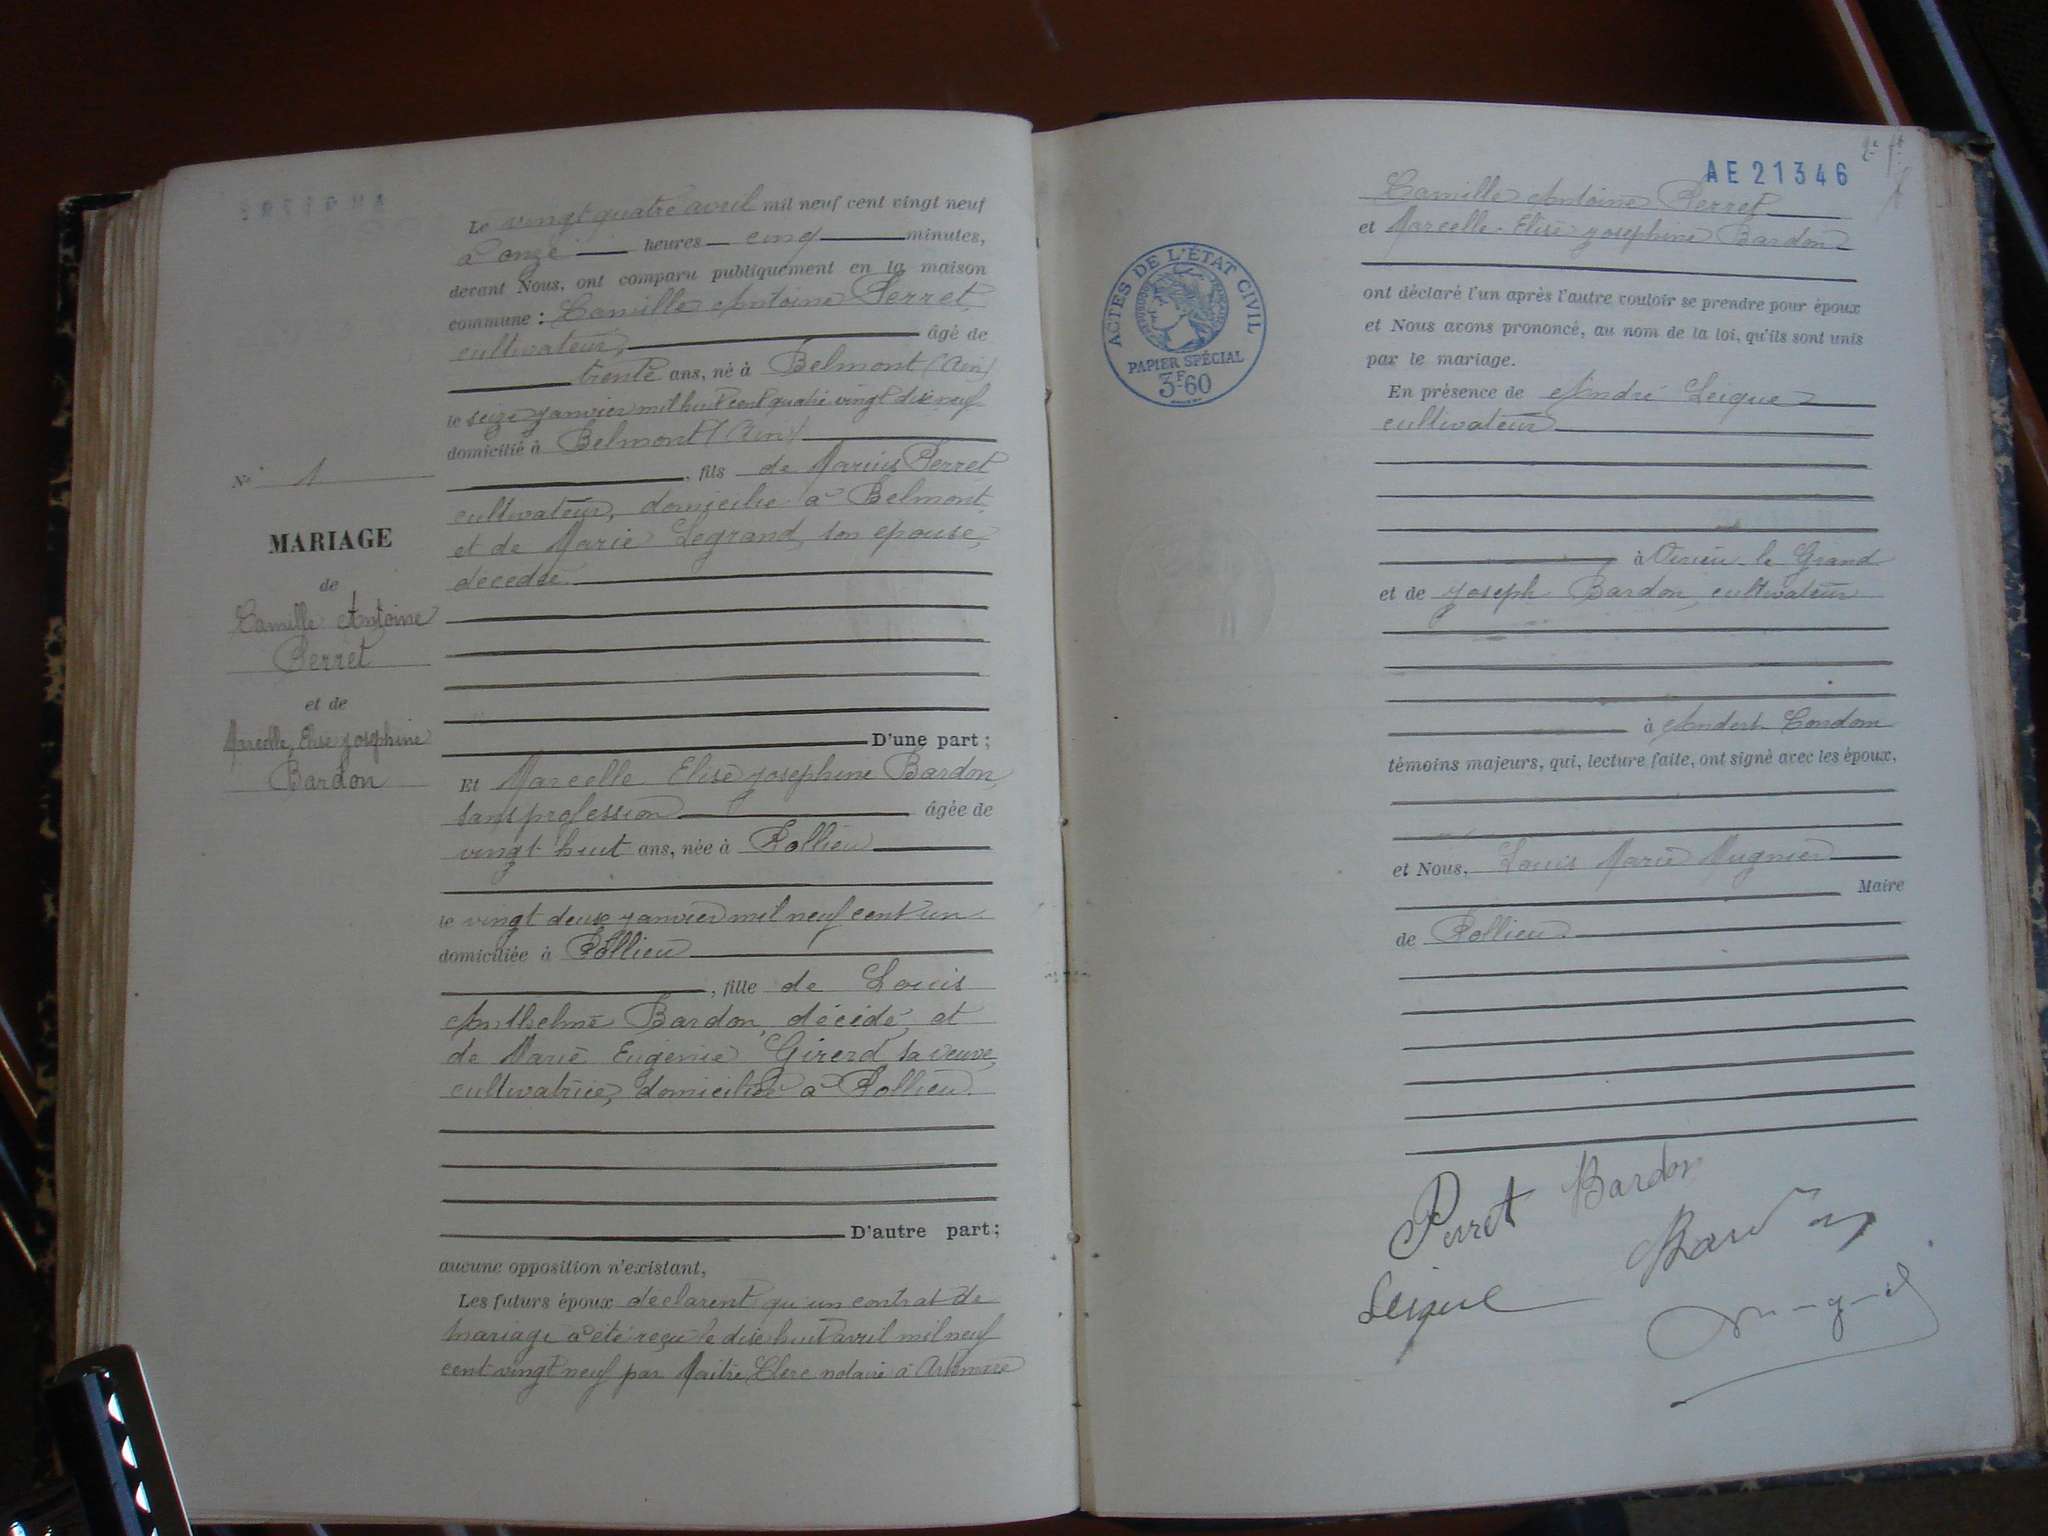 Le vingt quatre avril mil neuf cent vingt neuf
à onze heures cinq minutes,
devant Nous, ont comparu publiquement en la maison
commune : Camille Antoine Perret
cultivateur, âgé de
trente ans, né à Belmont (Ain)
le seize janvier mil huit cent quatre vingt dix neuf
domicilié à Belmont (Ain)
, fils de Marius Perret
cultivateur, domicilié à Belmont
et de Marie Legrand, son épouse,
décédée.
D'une part ;
Nº 1
MARIAGE
de
Camille Antoine
Perret
et de
Marcelle Elise Joséphine
Bardon
Et Marcelle Elise Joséphine Bardon,
sans profession âgée de
vingt huit ans, née à Pollieu
le vingt deux janvier mil neuf cent un
domiciliée à Pollieu
, fille de Louis
Anthelme Bardon, décédé, et
de Marie Eugénie Girerd, sa veuve,
cultivatrice, domiciliée à Pollieu.
D'autre part ;
aucune opposition n'existant,
Les futurs époux déclarent qu'un contrat de
mariage a été reçu le dix huit avril mil neuf
cent vingt neuf par Maître Clerc notaire à Artemare
AE 21346
Camille Antoine Perret
et Marcelle Elise Joséphine Bardon
ont déclaré l'un après l'autre vouloir se prendre pour époux
et Nous avons prononcé, au nom de la loi, qu'ils sont unis
par le mariage.
ACTES DE L'ÉTAT CIVIL
PAPIER SPÉCIAL
3F60
En présence de André Leique
cultivateur
à Virieu le Grand
et de Joseph Bardon, cultivateur
à Andert Condon
témoins majeurs, qui, lecture faite, ont signé avec les époux,
et Nous, Louis Marie Mugnier
Maire
de Pollieu.
Perret Bardon
Leique Bardon